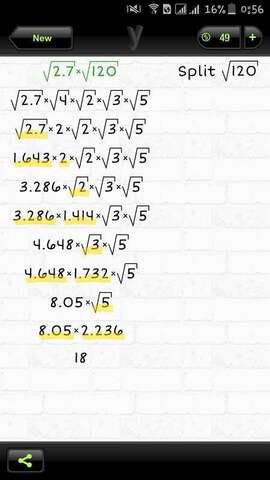 16% 0:56
New y 49 +
√2.7×√120 Split √120
√2.7×√4×√2×√3×√5
√2.7×2×√2×√3×√5
1.643×2×√2×√3×√5
3.286×√2×√3×√5
3.286×1.414×√3×√5
4.648×√3×√5
4.648×1.732×√5
8.05×√5
8.05×2.236
18